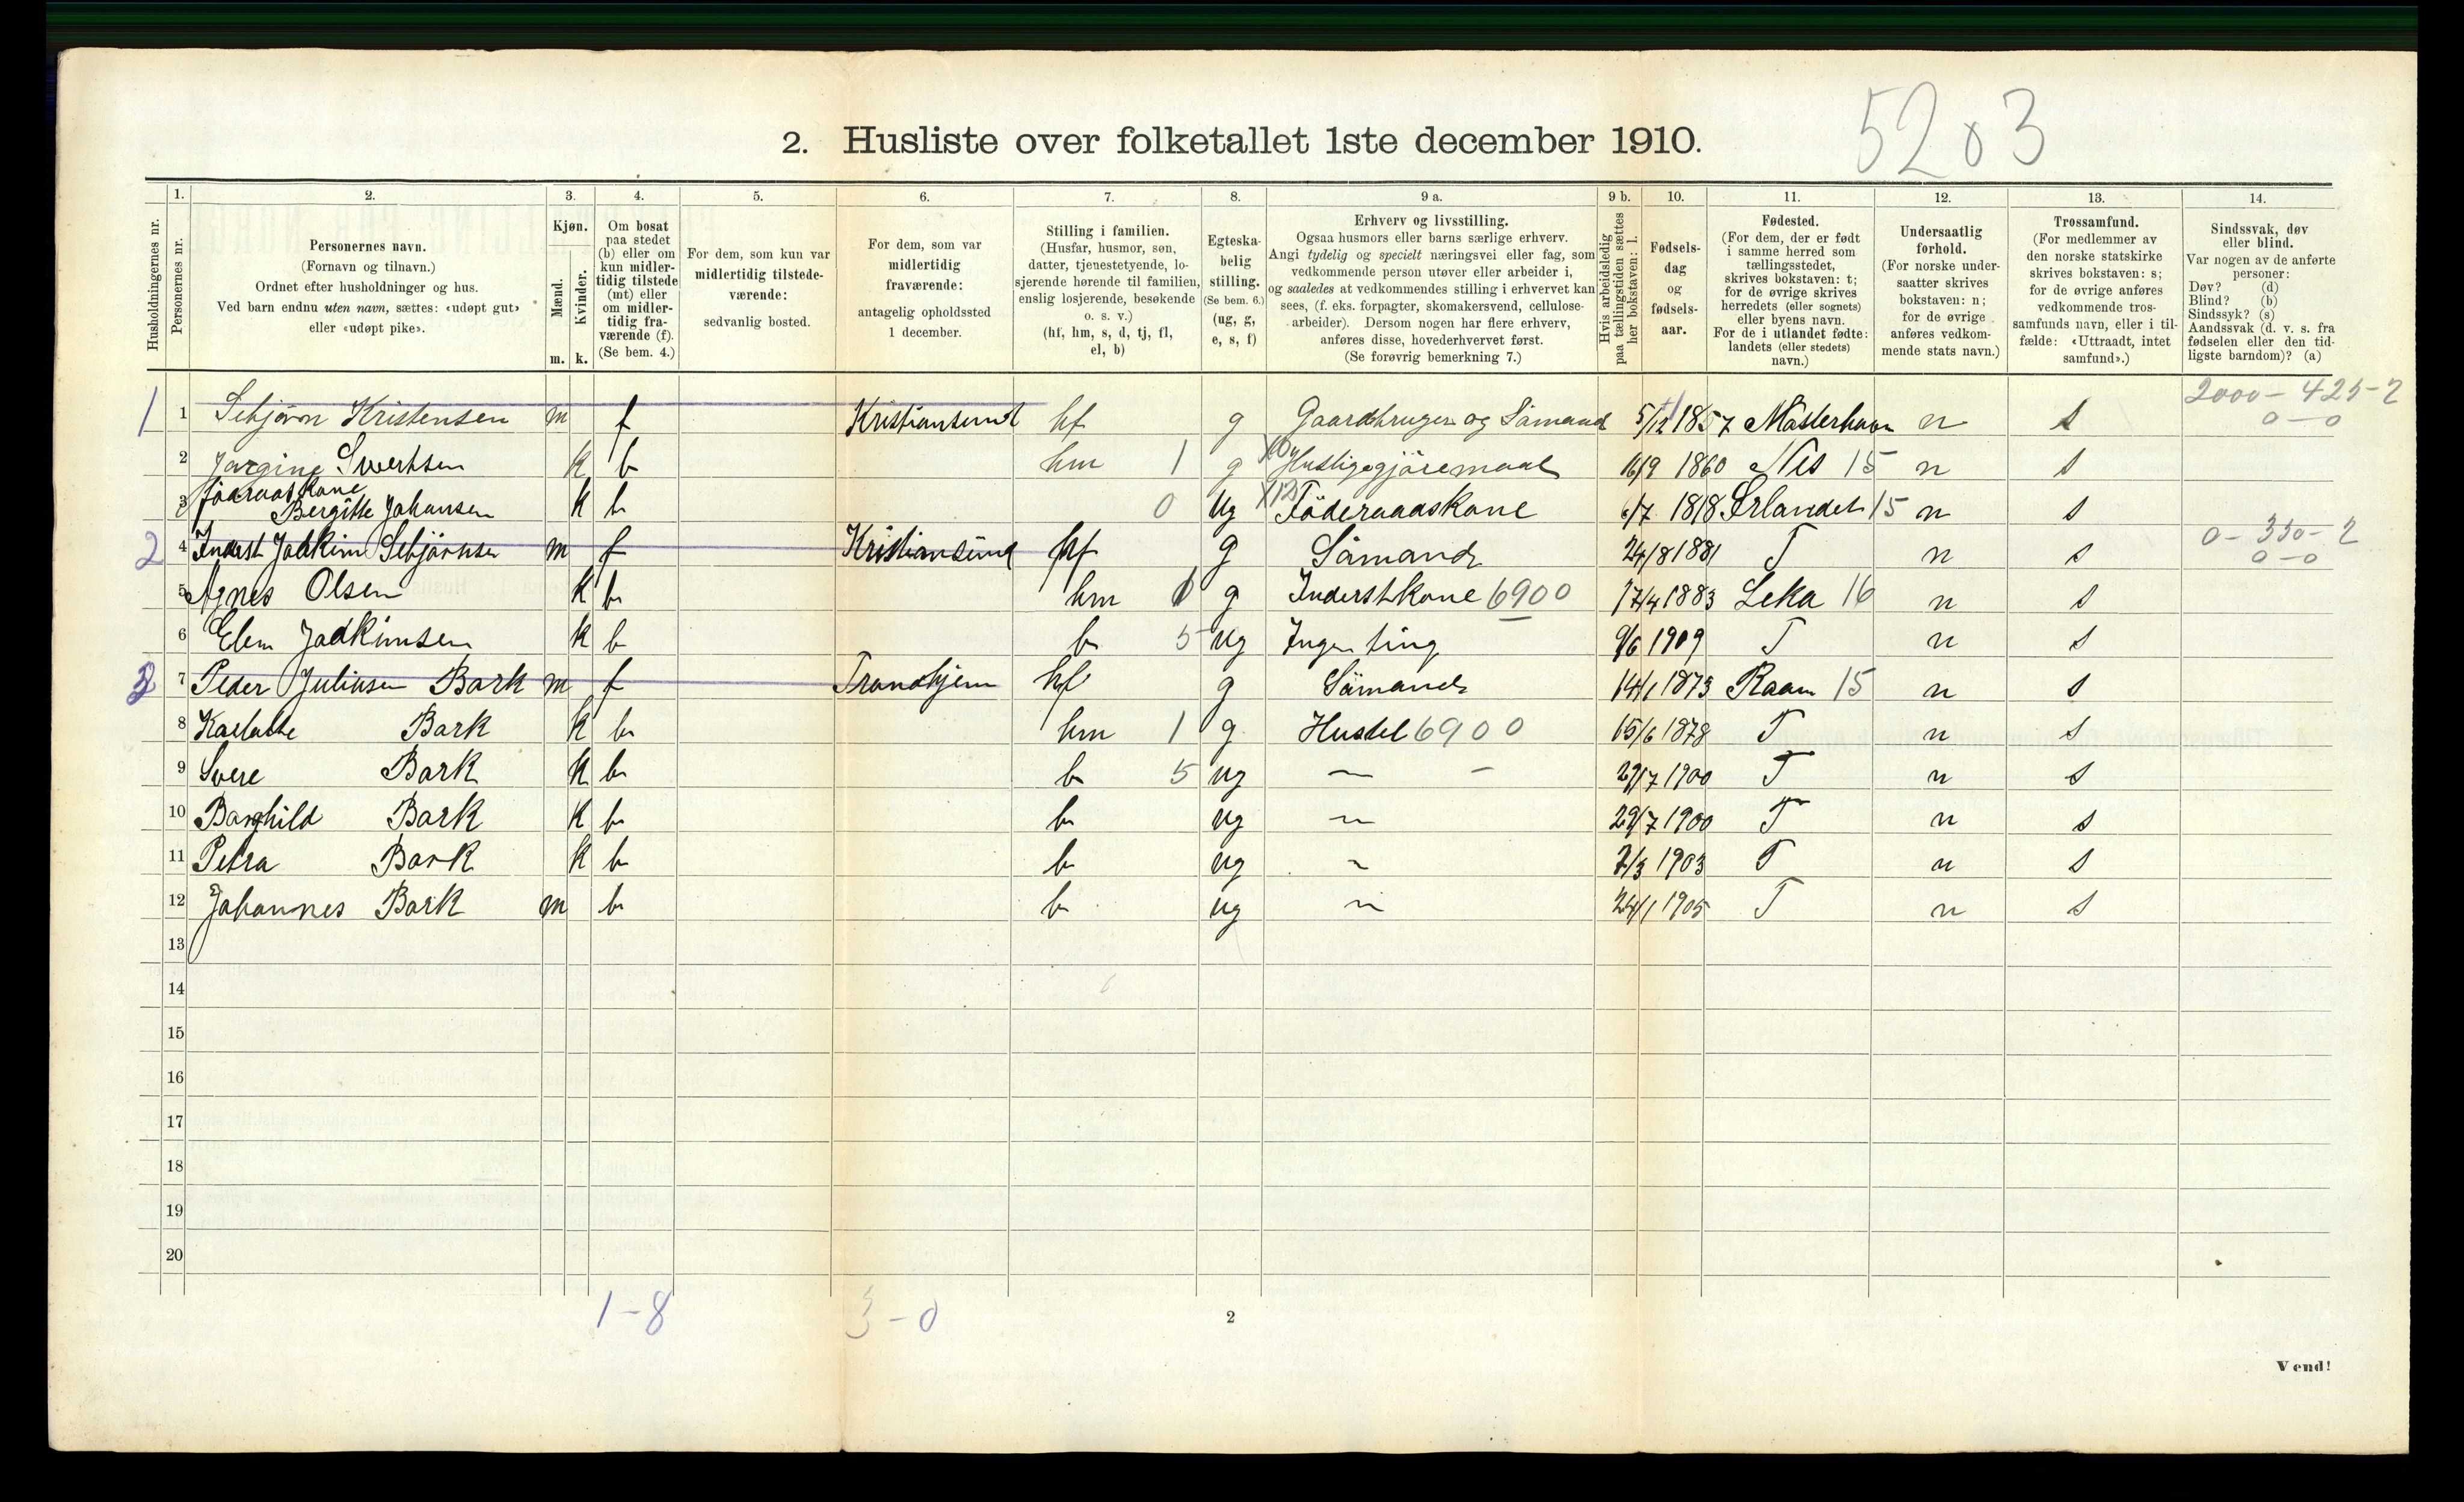 5203
2. Husliste over folketallet 1ste december 1910.
Husholdningernes nr.
1.
Personernes nr.
2.
Personernes navn.
(Fornavn og tilnavn.)
Ordnet efter husholdninger og hus.
Ved barn endnu uten navn, sættes: «udøpt gut»
eller «udøpt pike».
3.
Kjøn.
Mænd.
Kvinder.
m. k.
4.
Om bosat
paa stedet
(b) eller om
kun midler-
tidig tilstede
(mt) eller
om midler-
tidig fra-
værende (f).
(Se bem. 4.)
5.
For dem, som kun var
midlertidig tilstede-
værende:
sedvanlig bosted.
6.
For dem, som var
midlertidig
fraværende:
antagelig opholdssted
1 december.
7.
Stilling i familien.
(Husfar, husmor, søn,
datter, tjenestetyende, lo-
sjerende hørende til familien,
enslig losjerende, besøkende
o. s. v.)
(hf, hm, s, d, tj, fl,
el, b)
8.
Egteska-
belig
stilling.
(Se bem. 6.)
(ug, g,
e, s, f)
9 a.
Erhverv og livsstilling.
Ogsaa husmors eller barns særlige erhverv.
Angi tydelig og specielt næringsvei eller fag, som
vedkommende person utøver eller arbeider i,
og saaledes at vedkommendes stilling i erhvervet kan
sees, (f. eks. forpagter, skomakersvend, cellulose-
arbeider). Dersom nogen har flere erhverv,
anføres disse, hovederhvervet først.
(Se forøvrig bemerkning 7.)
9 b.
Hvis arbeidsledig
paa tællingstiden sættes
her bokstaven: l.
10.
Fødsels-
dag
og
fødsels-
aar.
11.
Fødested.
(For dem, der er født
i samme herred som
tællingsstedet,
skrives bokstaven: t;
for de øvrige skrives
herredets (eller sognets)
eller byens navn.
For de i utlandet fødte:
landets (eller stedets)
navn.)
12.
Undersaatlig
forhold.
(For norske under-
saatter skrives
bokstaven: n;
for de øvrige
anføres vedkom-
mende stats navn.)
13.
Trossamfund.
(For medlemmer av
den norske statskirke
skrives bokstaven: s;
for de øvrige anføres
vedkommende tros-
samfunds navn, eller i til-
fælde: «Uttraadt, intet
samfund».)
14.
Sindssvak, døv
eller blind.
Var nogen av de anførte
personer:
Døv? (d)
Blind? (b)
Sindssyk? (s)
Aandssvak (d. v. s. fra
fødselen eller den tid-
ligste barndom)? (a)
2000 - 425 - 2
0 - 0
1 1 Sebjörn Kristensen m f Kristiansund hf g Gaardbruger og Sömand 5/12 1857 n s
2 Jorgine Sivertsen k b hm 1 g Husligegjöremaal 16/9 1860 Nes 15 n s
3 Bergitte Johansen k b 0 ug Föderaadskone 6/7 1818 Örlandet 15 n s
0 - 330 - 2
0 - 0
2 4 Inderst Joakim Sebjörnsen m f Kristiansund hf g Sömand 24/8 1881 T n s
5 Agnes Olsen k b hm 1 g Inderstkone 6900 17/4 1883 Leka 16 n s
6 Joakimsen k b b 5 ug Ingenting 9/6 1909 T n s
3 7 Peder Juliusen Bark m f Trondhjem hf g Sömand 14/1 1873 Roan 15 n s
8 Bark k b hm 1 g Hustel 6900 15/6 1878 T n s
9 Bark k b b 5 ug — - 29/7 1900 T n s
10 Borghild Bark k b b ug — 29/7 1900 T n s
11 Petra Bark k b b ug - 7/3 1903 T n s
12 Johannes Bark m b b ug — 24/1 1905 T n s
13
14
15
16
17
18
19
20
1 - 8 3 - 0
2
Vend!